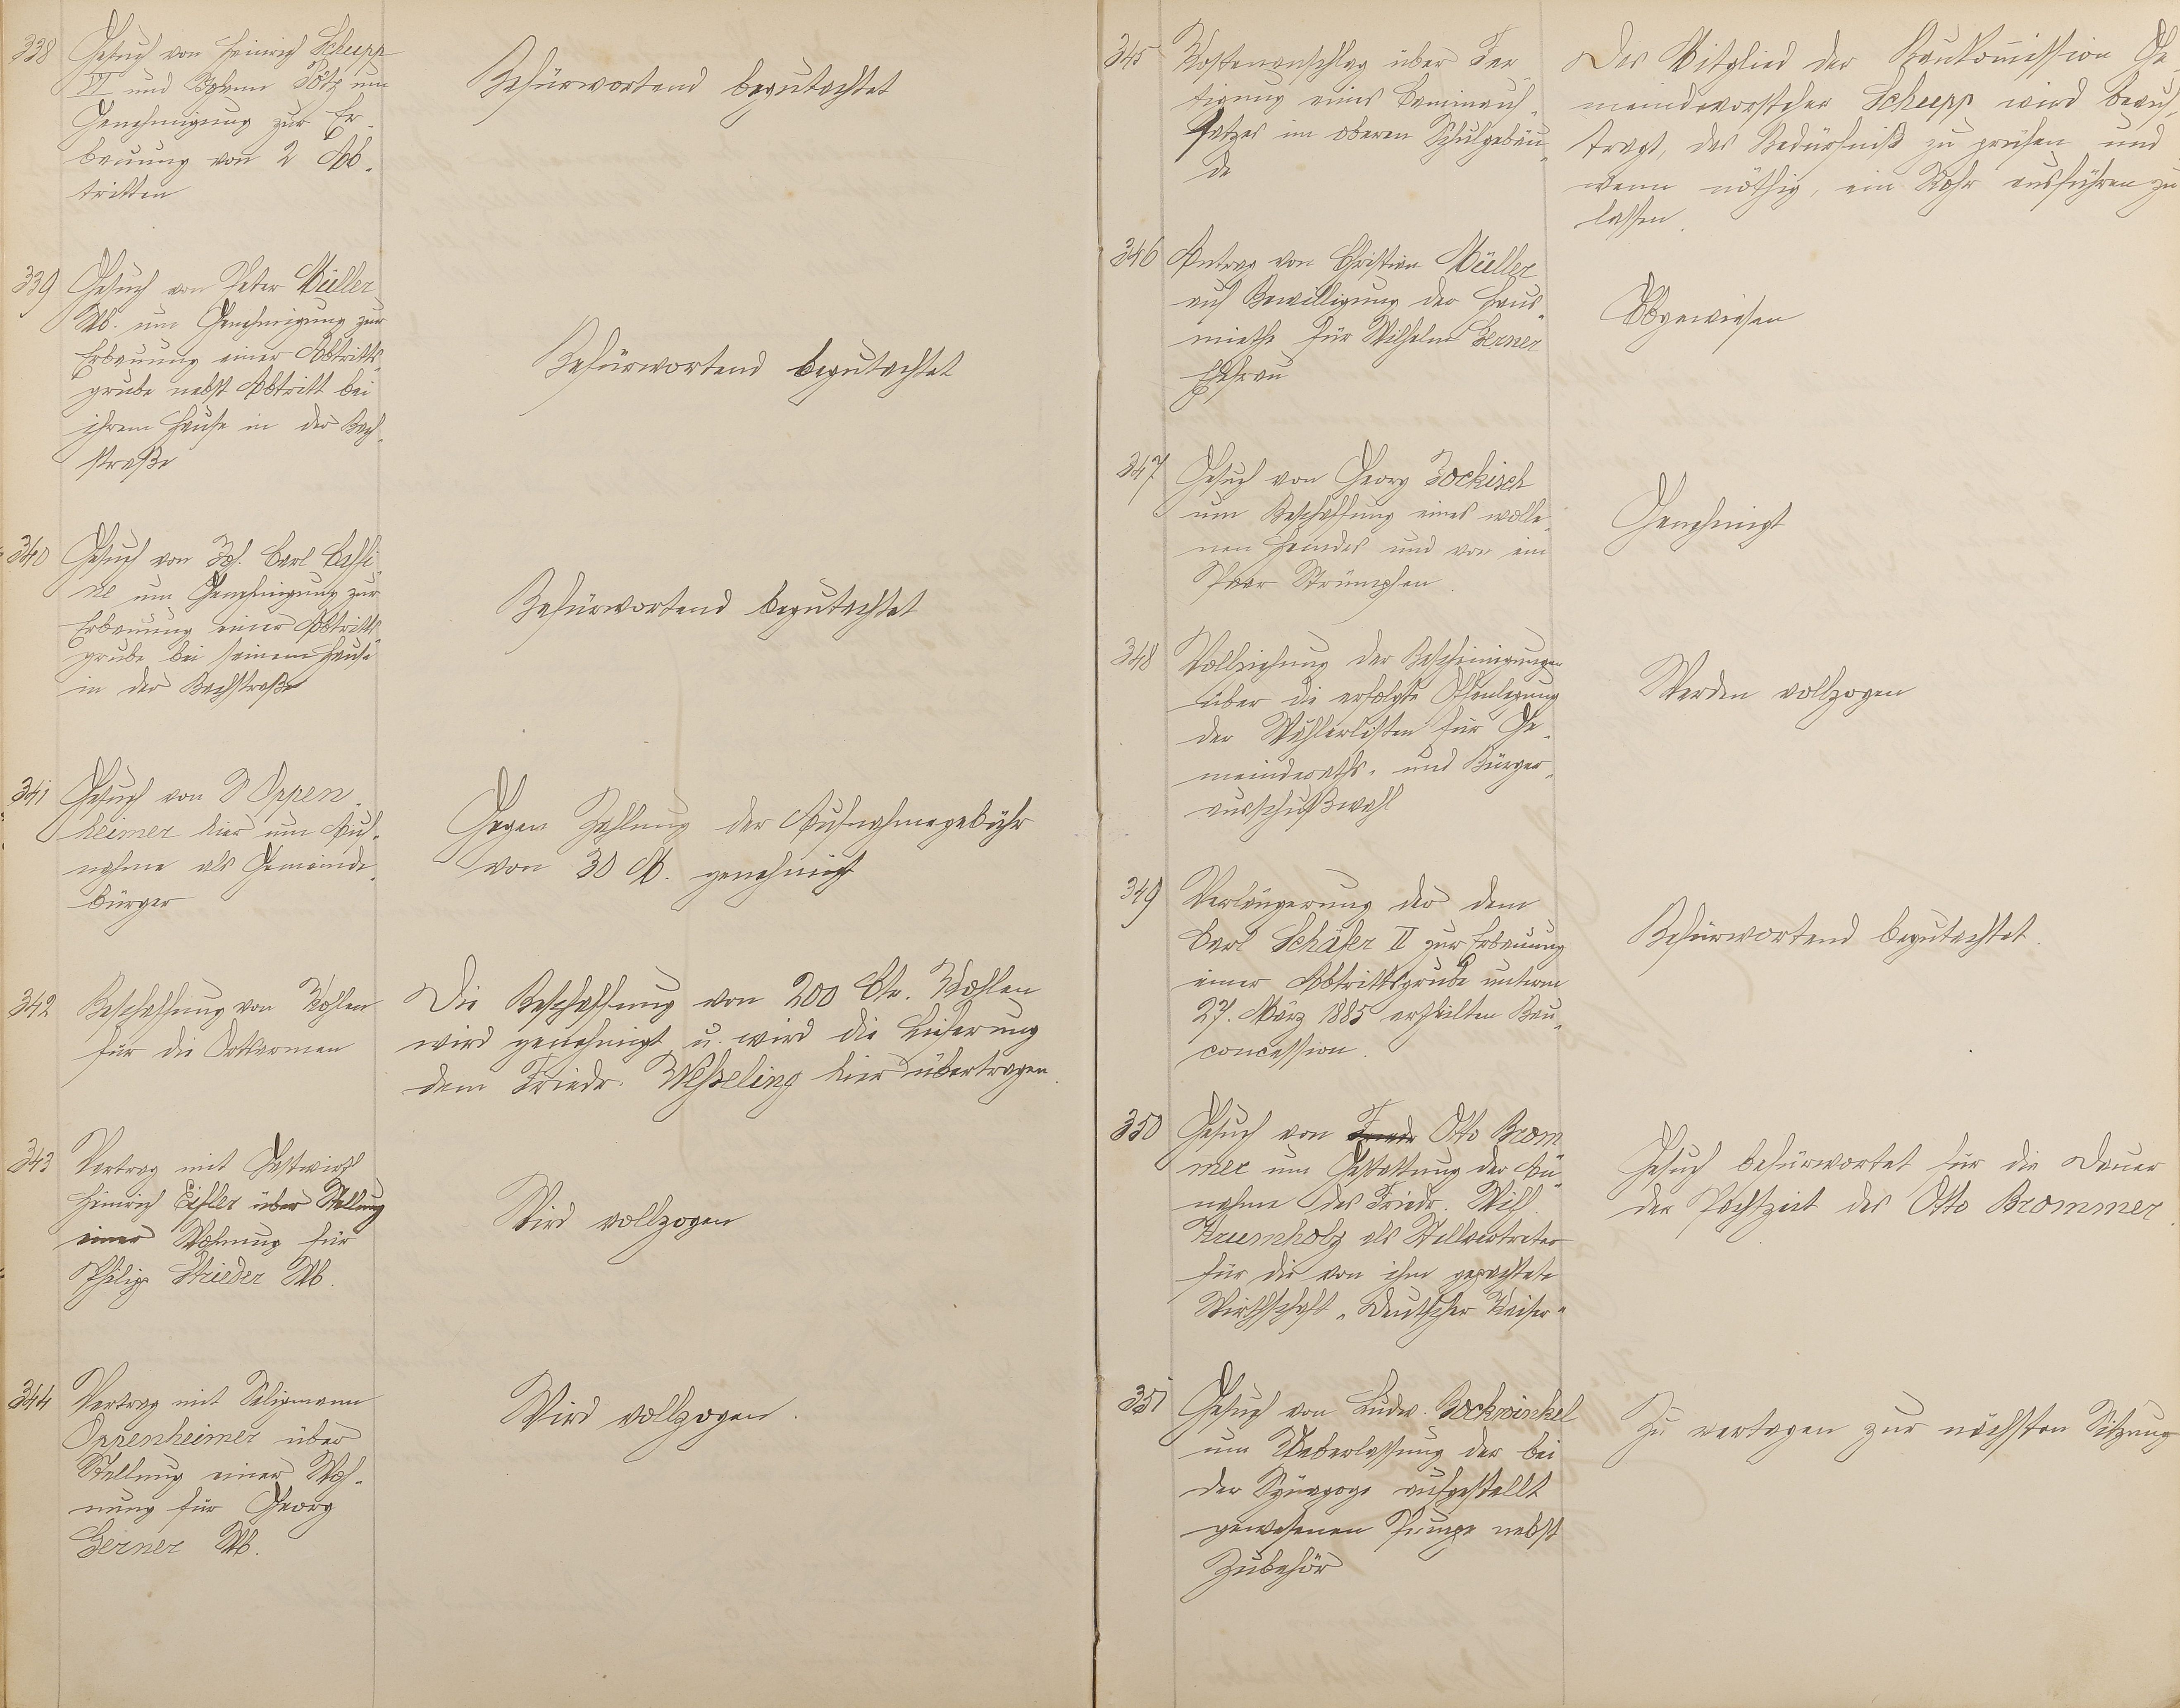 338 Gesuch von Heinrich Schupp
VI und Johann Götz um
Genehmigung zur Er-
bauung von 2 Ab-
tritten
Befürwortend begutachtet
339 Gesuch von Peter Müller
Wb. um Genehmigung zur
Erbauung einer Abtritts-
grube nebst Abtritt bei
ihrem Hause in der Bach-
straße
Befürwortend begutachtet
340 Gesuch von Joh. Carl
um Genehmigung zur
Erbauung einer Abtritts-
grube bei seinem Hause
in der Bachstraße
Befürwortend begutachtet
341 Gesuch von S Oppen-
heimer hier um Auf-
nahme als Gemeinde-
bürger
Gegen Zahlung der Aufnahmegebühr
von 30 M. genehmigt
342 Beschaffung von Kohlen
für die Ortsarmen
Die Beschaffung von 200 Ctr. Kohlen
wird genehmigt u. wird die Lieferung
dem Friedr. Weßeling hier übertragen.
343 Vertrag mit Gastwirth
Heinrich Eifler über Stellung
einer Wohnung für
Philipp Strieder Wb.
Wird vollzogen
344 Vertrag mit Seligmann
Oppenheimer über
Stellung einer Woh-
nung für Georg
Gerner Wb.
Wird vollzogen.
345 Kostenanschlag über Fer-
tigung eines Caminauf-
satzes im oberen Schulgebäu-
de
Das Mitglied der Baukommission Ge-
meindevorsteher Schupp wird beauf-
tragt, das Bedürfniß zu prüfen und
wenn nöthig, ein Rohr ausführen zu
lassen.
346 Antrag von Christian Müller
auf Bewilligung der Haus-
miethe für Wilhelm Gerner
Ehefrau
Abgewiesen
347 Gesuch von Georg Zockisch
um Beschaffung eines wolle-
nen Hemdes und von ein
Paar Strümpfen.
Genehmigt
348 Vollziehung der Bescheinigungen
über die erfolgte Offenlegung
der Wählerlisten für Ge-
meinderaths- und Bürger-
ausschußwahl
Werden vollzogen
349 Verlängerung der dem
Carl Schäfer II zur Erbauung
einer Abtrittsgrube unterm
27. März 1885 ertheilten Bau-
concession.
Befürwortend begutachtet.
350 Gesuch von Friedr Otto Brom
mer um Gestattung der An-
nahme des Friedr. Wilh.
Krumholz als Stellvertreter
für die von ihm gepachtete
Wirthschaft „Deutscher Kaiser"
Gesuch befürwortet für die Dauer
der Pachtzeit des Otto Brommer.
351 Gesuch von Ludw. Bockwinkel
um Ueberlassung der bei
der Synagoge aufgestellt
gewesenen Pumpe nebst
Zubehör
Zu vertagen zur nächsten Sitzung